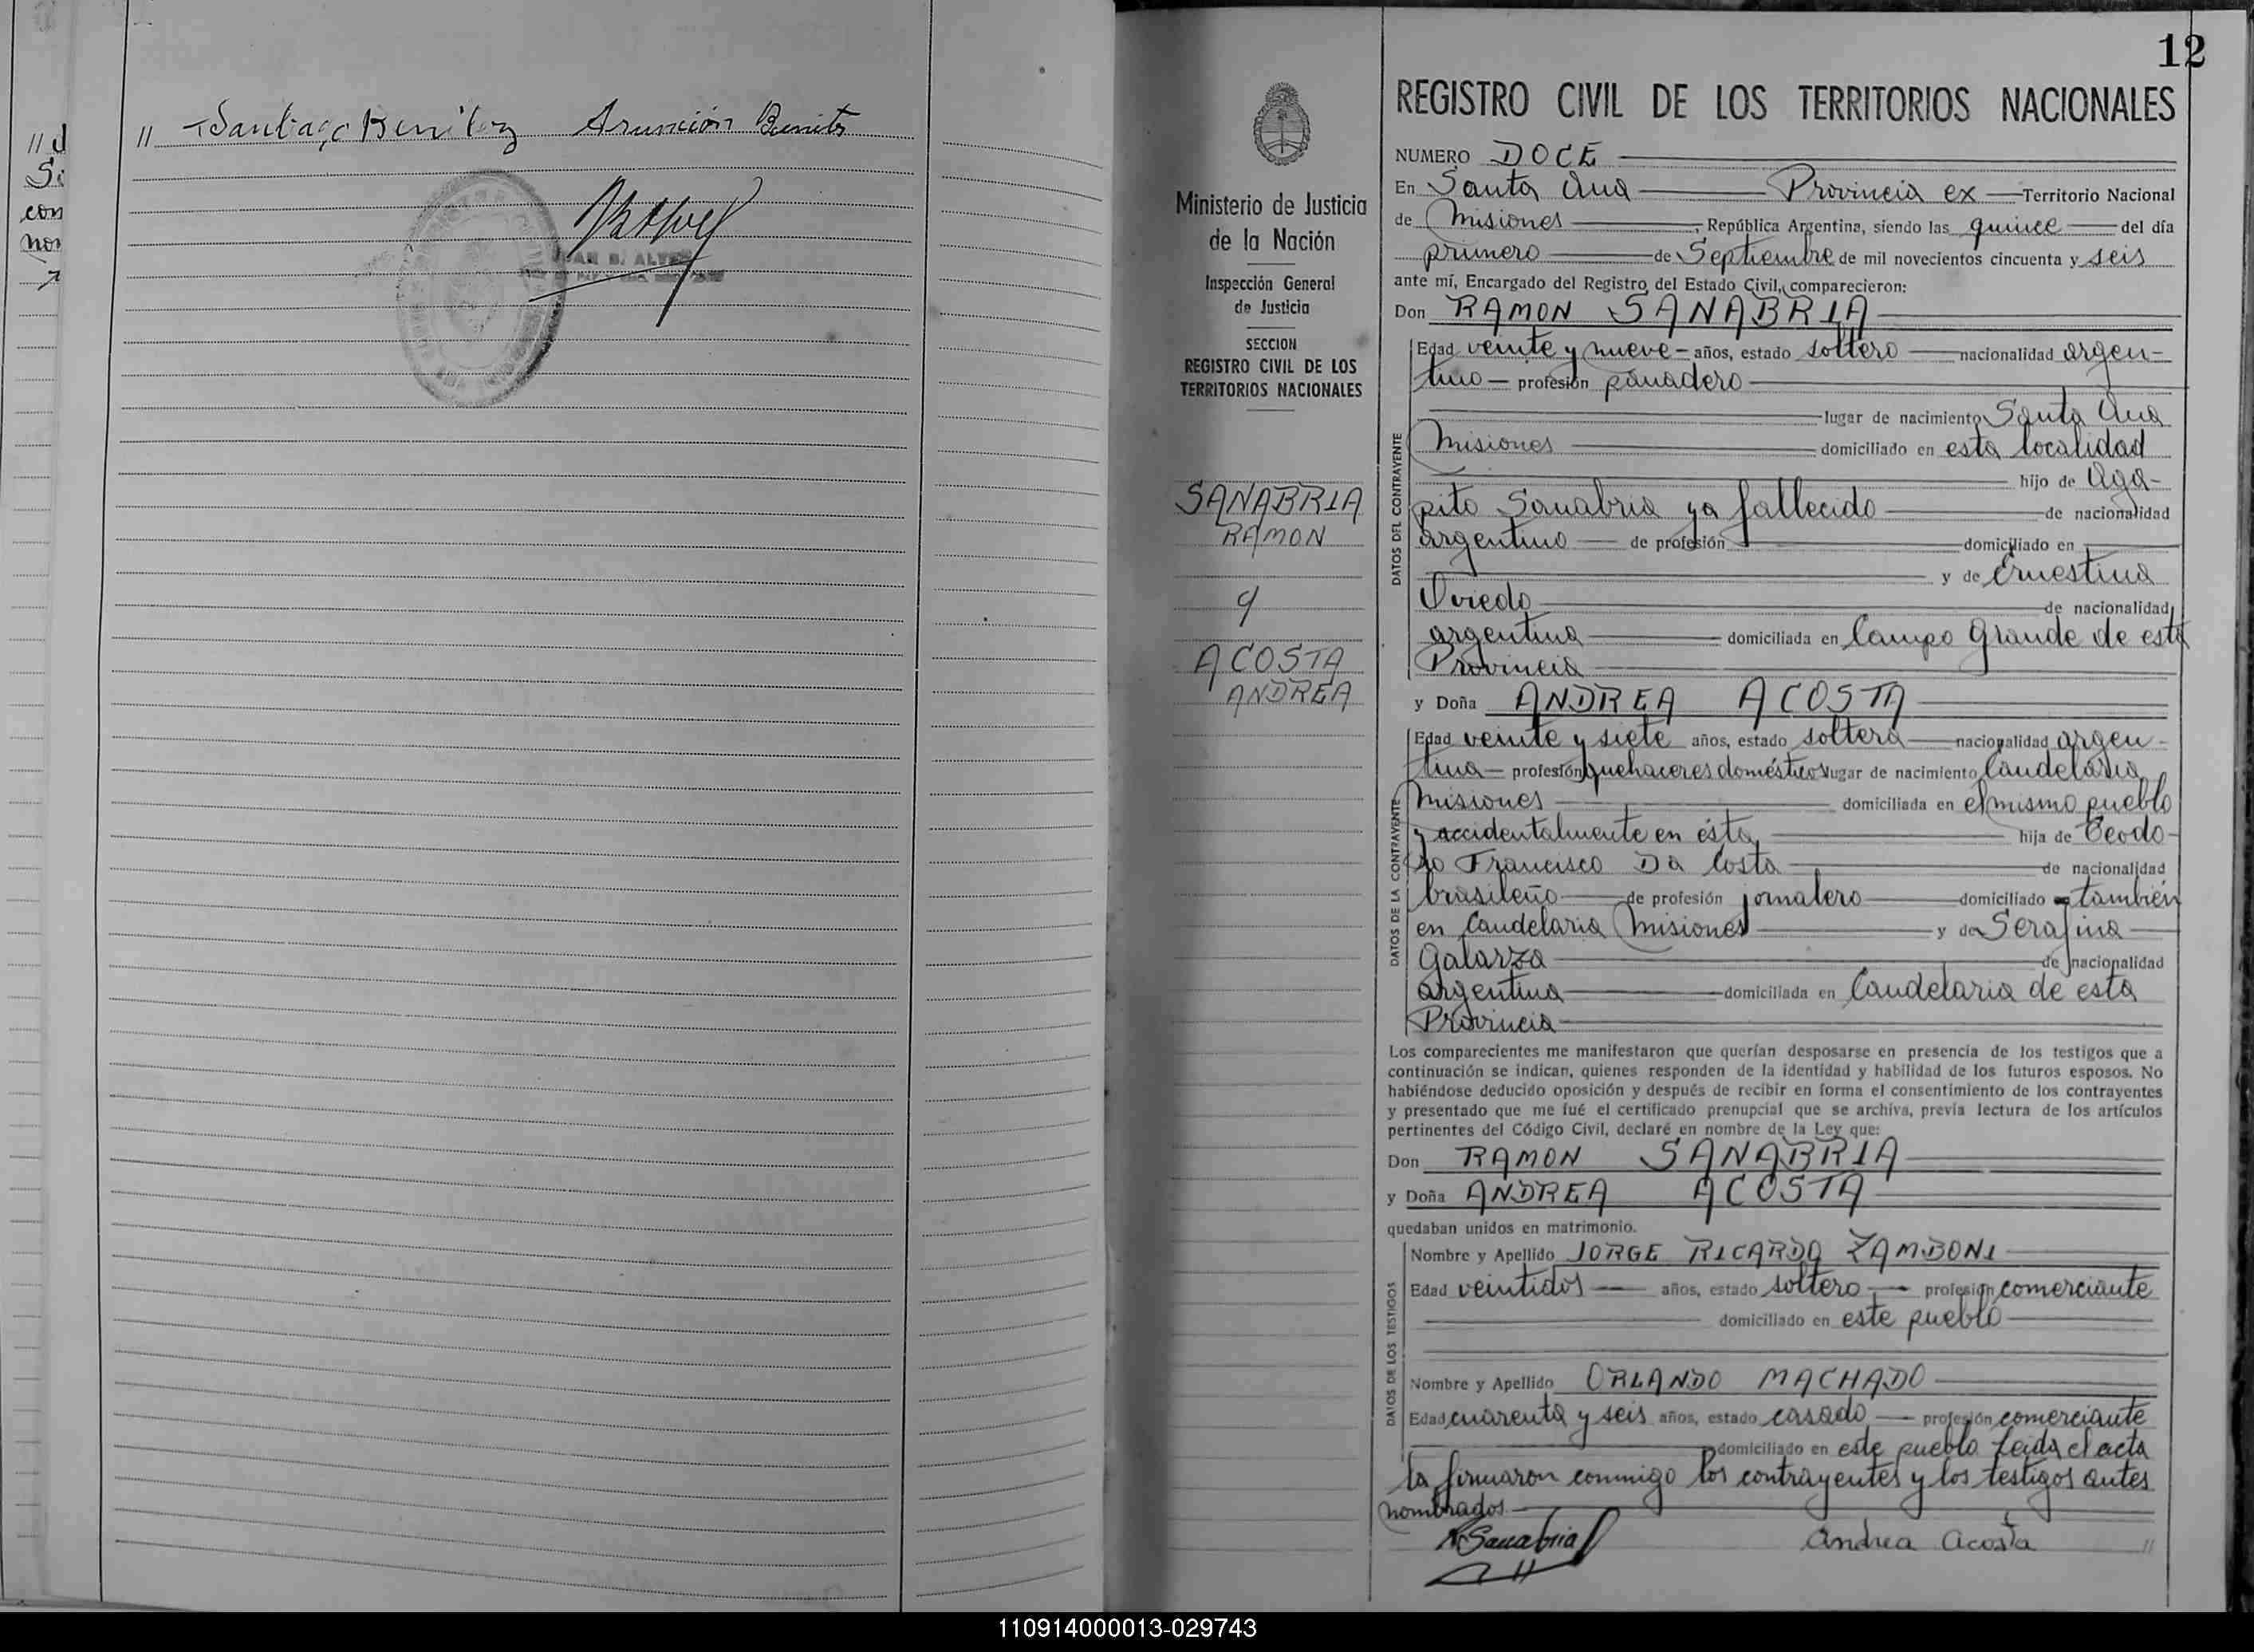 // Santiago Benitez Asunción Benitez
12
REGISTRO CIVIL DE LOS TERRITORIOS NACIONALES
Ministerio de Justicia
de la Nación
Inspección General
de Justicia
SECCION
REGISTRO CIVIL DE LOS
TERRITORIOS NACIONALES
SANABRIA
RAMON
y
ACOSTA
ANDREA
NUMERO DOCE
En Santa Ana Provincia ex Territorio Nacional
de Misiones, República Argentina, siendo las quince del día
primero de Septiembre de mil novecientos cincuenta y seis
ante mí, Encargado del Registro del Estado Civil, comparecieron:
Don RAMON SANABRIA
DATOS DEL CONTRAYENTE
Edad veinte y nueve - años, estado soltero nacionalidad argen-
tino profesión panadero
lugar de nacimiento Santa Ana
Misiones domiciliado en esta localidad
hijo de Aga-
pito Sanabria ya fallecido de nacionalidad
argentino de profesión domiciliado en
y de Ernestina
Oviedo de nacionalidad
argentina domiciliada en Campo Grande de esta
Provincia
y Doña ANDREA ACOSTA
DATOS DE LA CONTRAYENTE
Edad veinte y siete años, estado soltera nacionalidad argen-
tina profesión quehaceres domésticos lugar de nacimiento Candelaria
Misiones domiciliada en el mismo pueblo
y accidentalmente en ésta hija de Teodo-
ro Francisco Da Costa de nacionalidad
brasileño de profesión jornalero domiciliado también
en Candelaria Misiones y de Serafina
Galarza de nacionalidad
argentina domiciliada en Candelaria de esta
Provincia
Los comparecientes me manifestaron que querían desposarse en presencia de los testigos que a
continuación se indican, quienes responden de la identidad y habilidad de los futuros esposos. No
habiéndose deducido oposición y después de recibir en forma el consentimiento de los contrayentes
y presentado que me fué el certificado prenupcial que se archiva, previa lectura de los artículos
pertinentes del Código Civil, declaré en nombre de la Ley que:
Don RAMON SANABRIA
y Doña ANDREA ACOSTA
quedaban unidos en matrimonio.
DATOS DE LOS TESTIGOS
Nombre y Apellido JORGE RICARDO ZAMBONI
Edad veintidos años, estado soltero profesión comerciante
domiciliado en este pueblo
Nombre y Apellido ORLANDO MACHADO
Edad cuarenta y seis años, estado casado profesión comerciante
domiciliado en este pueblo Leida el acta
la firmaron conmigo los contrayentes y los testigos antes
nombrados.
R Sanabria Andrea Acosta //
110914000013-029743